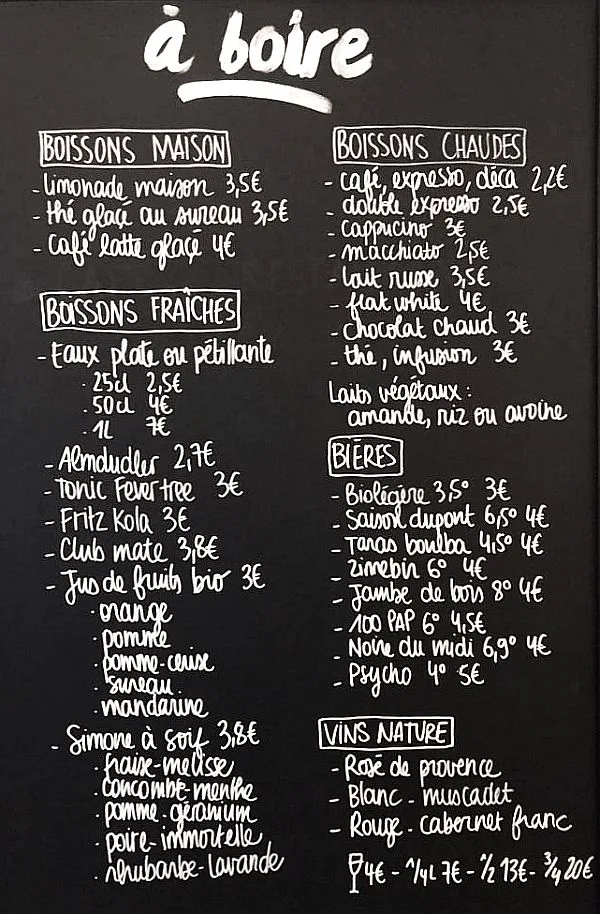 à boire
BOISSONS MAISON
- limonade maison 3,5€
- thé glaçé au sureau 3,5€
- Café latte glaçé 4€
BOISSONS FRAÎCHES
- Eaux plate ou pétillante
. 25cl 2,5€
. 50cl 4€
. 1L 7€
- Almdudler 2,7€
- Tonic Fever tree 3€
- Fritz Kola 3€
- Club mate 3,8€
- Jus de fruits bio 3€
. orange
. pomme
. pomme-cerise
. sureau
. mandarine
- Simone à soif 3,8€
. fraise-mélisse
. concombre-menthe
. pomme-géranium
. poire-immortelle
. rhubarbe-lavande
BOISSONS CHAUDES
- café, expresso, déca 2,2€
- double expresso 2,5€
- cappucino 3€
- macchiato 2,5€
- lait russe 3,5€
- flat white 4€
- chocolat chaud 3€
- thé, infusion 3€
Laits végétaux :
amande, riz ou avoine
BIÈRES
- Biolégère 3,5° 3€
- Saison dupont 6,5° 4€
- Taras boulba 4,5° 4€
- Zinnebir 6° 4€
- Jambe de bois 8° 4€
- 100 PAP 6° 4,5€
- Noire du midi 6,9° 4€
- Psycho 4° 5€
VINS NATURE
- Rosé de provence
- Blanc - muscadet
- Rouge - cabernet franc
4€ - 1/4L 7€ - 1/2 13€ - 3/4 20€